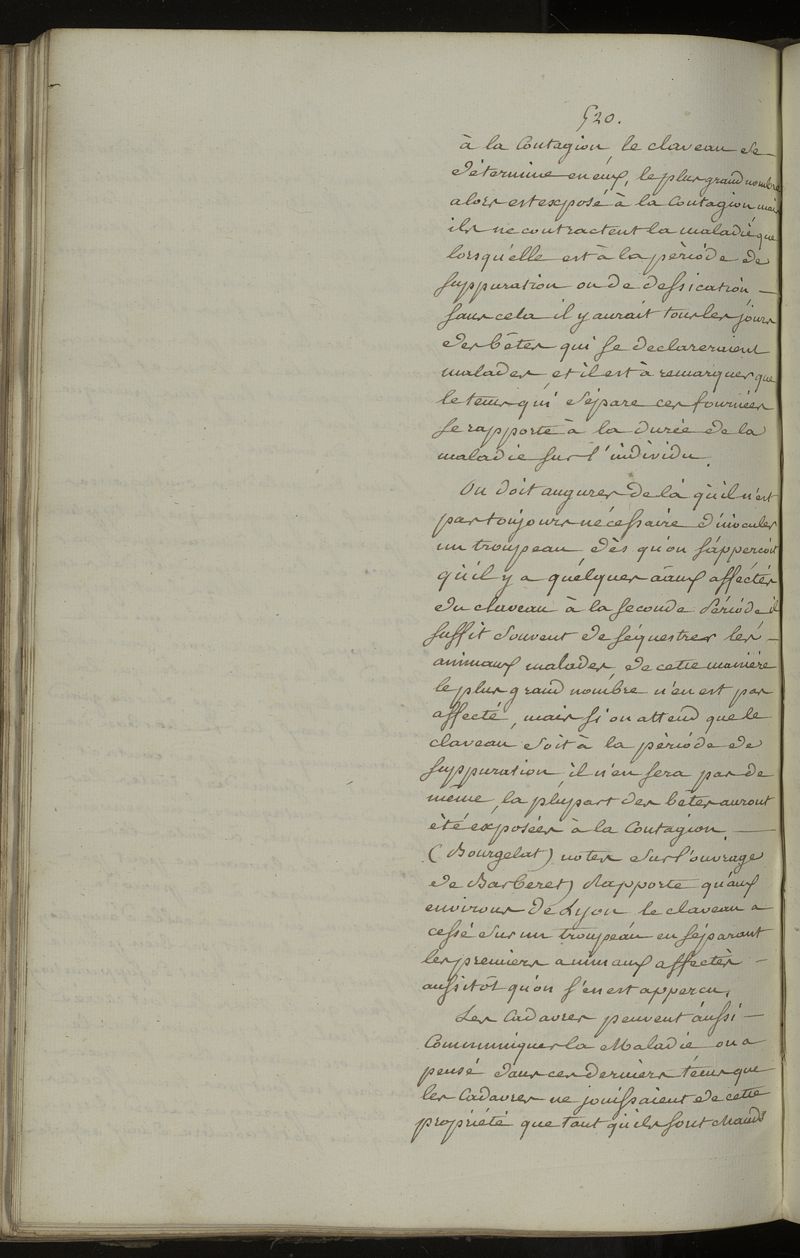 520.
à la Contagion, le claveau se
détermine en eux, le plus grand nombre
alors est exposé à la Contagion mais
ils ne contractent la maladie que
lorsqu'elle est à la période de
suppuration ou de dessication —
sans cela il y aurait tous les jours
des bêtes qui se declareraient
malades, et il est à remarquer que
le tems qui sépare ces fournées
se rapporte à la durée de la
maladie sur l'individu.
On doit augurer de là qu'il n'est
pas toujours nécessaire d'inoculer
un troupeau dès qu'on s'apperçoit
qu'il y a quelques affectés
du claveau à la seconde Période il
suffit souvent de séquestrer les —
animaux malades, de cette manière
le plus grand nombre n'en est pas
affecté, mais si on attend que le
claveau soit à la période de
suppuration, il n'en sera pas de
même, la plupart des bêtes auront
été exposées à la Contagion. —
(Bourgelat) notes sur l'ouvrage
de Barberet) Rapporte qu'aux
environs de Lyon le claveau a
cessé sur un troupeau en séparant
les premiers animaux affectés —
aussitôt qu'on s'en est apperçu.
Les Cadavres peuvent aussi —
Communiquer la Maladie on a
pensé dans ces derniers tems que
les Cadavres ne jouissaient de cette
propriété que tant qu'ils sont chauds